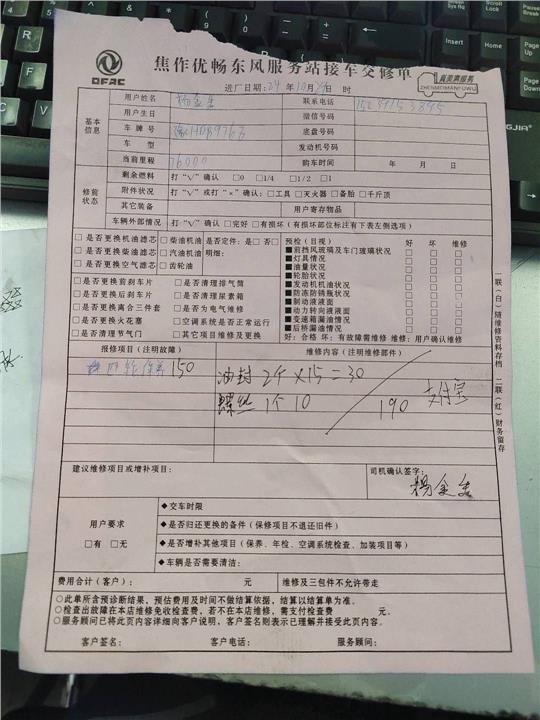 DFAC
焦作优畅东风服务站接车交修单
真美满服务
ZHENMEIMANFUWU
进厂日期:24年10月 日 时
用户姓名 联系电话
用户生日 微信号码
基本信息
车牌号 底盘号
车型 发动机号
当前里程 76000 购车时间 年 月 日
修前状态
剩余燃料 打“√”确认 □0 □1/4 □1/2 □1
附件状况 打“√”或打“×”确认:□工具 □灭火器 □备胎 □千斤顶
其它装备 用户寄存物品
车辆外部情况 打“√”确认 □完好 □有损坏(有损坏部位标注有下表左侧选项)
□是否更换机油滤芯 □柴油机油 是否定件:是□否□
□是否更换柴油滤芯 □汽油机油 明细:
□是否更换空气滤芯 □齿轮油
□是否更换前刹车片 □是否清理排气筒
□是否更换后刹车片 □是否清理尿素箱
□是否更换离合三件套 □是否为电气维修
□是否更换火花塞 □空调系统是否正常运行
□是否清理节气门 □其它项目维修及更换
预检(目视) 好 坏 维修
■前挡风玻璃及车门玻璃状况 □ □ □
■灯具情况 □ □ □
■油量状况 □ □ □
■轮胎状况 □ □ □
■发动机机油状况 □ □ □
■防冻防锈瓶状况 □ □ □
■制动液液面 □ □ □
■动力转向液液面 □ □ □
■变速箱漏油情况 □ □ □
■后桥漏油情况 □ □ □
好:合格 坏:有故障需维修 维修:用户确认维修
报修项目(注明故障) 维修内容(注明维修部件)
四轮保养 150 油封 2个×15=30
螺丝 1个 10 190 支付宝
建议维修项目或增补项目: 司机确认签字:
杨金
用户要求
□有 □无
◆交车时限
◆是否归还更换的备件(保修项目不退还旧件)
◆是否增补其他项目(保养、年检、空调系统检查、加装项目等)
◆车辆是否需要清洁:
费用合计(客户): 元 维修及三包件不允许带走
○此单所含预诊断结果,预估费用及时间不做结算依据,结算以结算单为准。
○检查出故障在本店维修免收检查费,若不在本店维修,需支付检查费 元。
○服务顾问已将此页内容详细向客户说明,客户签名则表示已理解并接受此页内容。
客户签名: 客户电话: 服务顾问:
一联(白)随维修资料存档 二联(红)财务留存